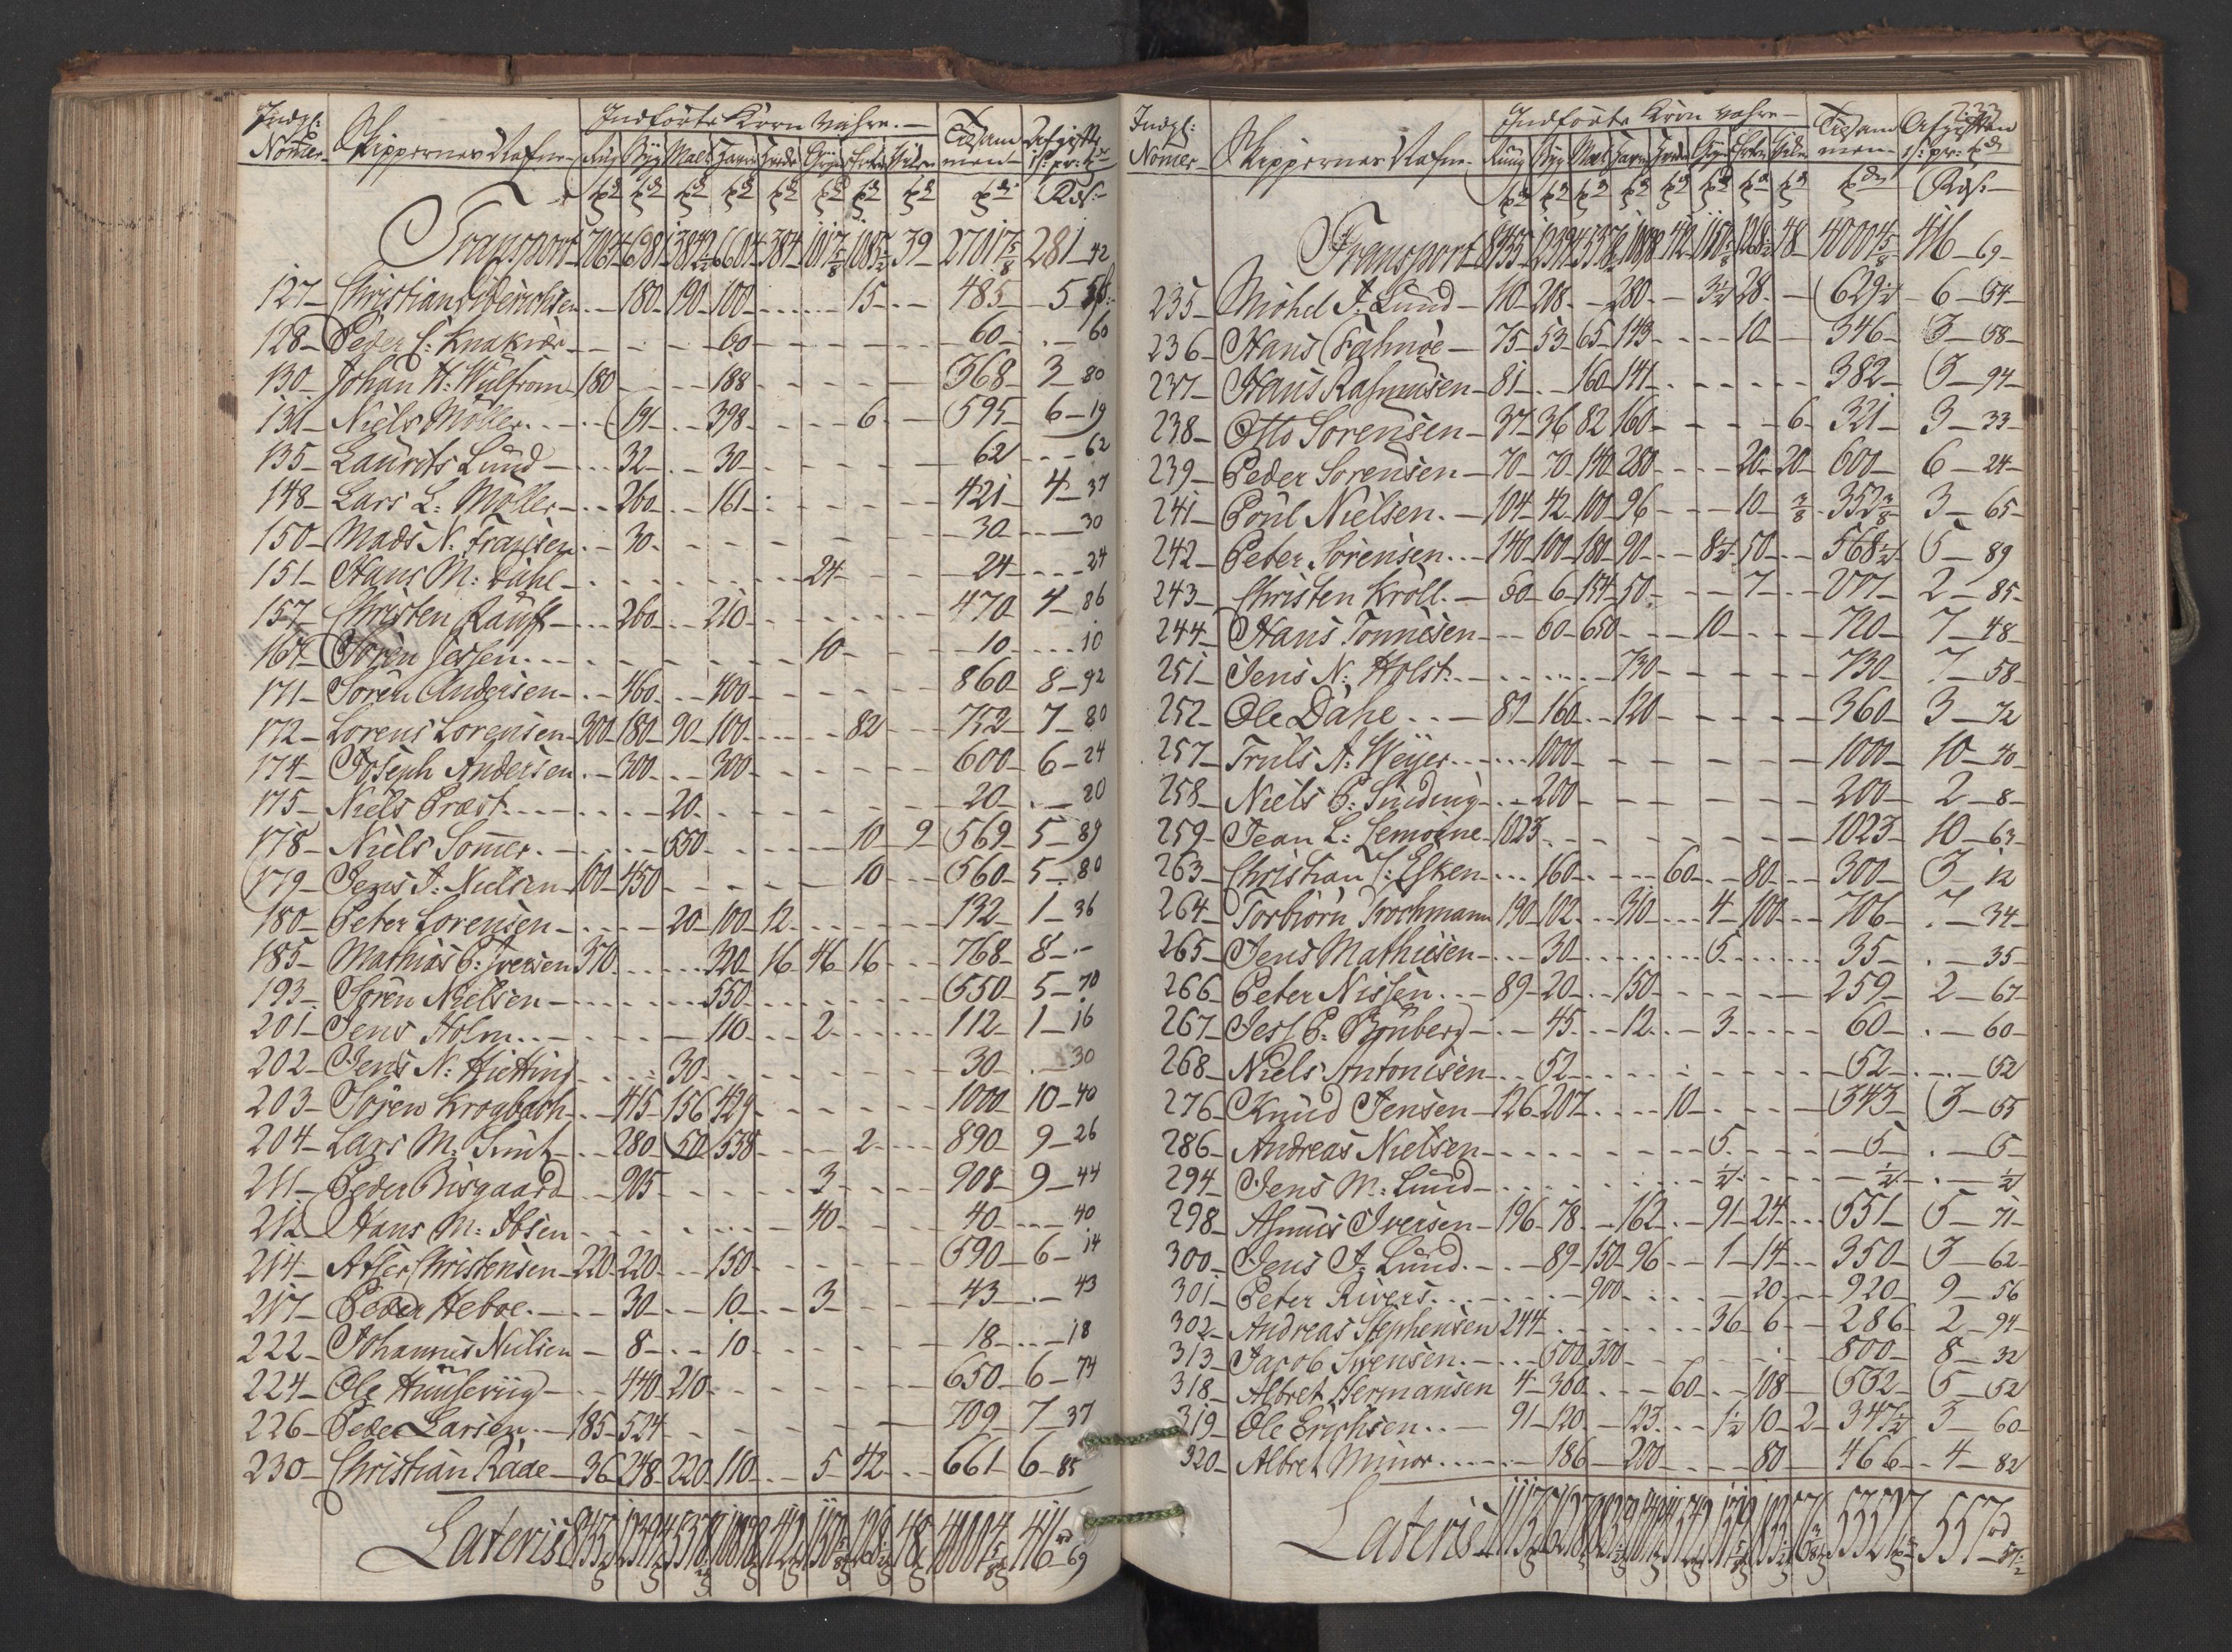 Indgl: Nomer Skippernes Nafne Indførte Korn Vahre Tilsammen Afgiften 1 s: pr: tde
Rug Byg Malt Havre Hvede Gryn Erter Hvidn
Transport 7024 6981 3842 6604 384 39 27017 5/8 281 42
127 Christian Diderichsen 180 190 100 15 485 5
128 Peder C: Knakvær 60 60 60
130 Johan H: Wulfrom 180 188 368 3 80
131 Niels Möller 191 398 6 595 6 19
135 Laurits Lund 32 30 62 62
148 Lars L: Möller 260 161 421 4 37
150 Mads N. Fransen 30 30 30
151 Hans M: Dahl 24 24 24
157 Christen Rauft 260 210 470 4 86
167 Søren Jessen 10 10 10
171 Søren Andersen 460 400 860 8 92
172 Lorens Lorensen 300 180 90 100 82 752 7 80
174 Joseph Andersen 300 300 600 6 24
175 Niels Præst 20 20 20
178 Niels Somer 550 10 9 569 5 89
179 Jens J: Nielsen 100 450 10 560 5 80
180 Peter Lorensen 20 100 12 132 1 36
185 Mathias P: Iversen 370 320 16 46 16 768 8
193 Søren Nielsen 550 550 5 70
201 Jens Holm 110 2 112 1 16
202 Jens N: Hietting 30 30 30
203 Søren Krogbech 415 156 429 1000 10 40
204 Lars M. Smit 280 50 558 2 890 9 26
211 Peder Bisgaard 905 3 908 9 44
212 Hans M: Ibsen 40 40 40
214 Atser Christensen 220 220 150 590 6 14
217 Peder Heboe 30 10 3 43 43
222 Johannes Nielsen 8 10 18 18
224 Ole Huuseviig 440 210 650 6 74
226 Peder Larsen 185 524 709 7 37
230 Christian Raae 36 248 220 110 5 42 661 6 85
Lateris 40004 5/8 416 rd 69
Indgl: Nomer Skippernes Nafne Indførte Korn Vahre Tilsammen Afgiften 1 s: pr: tde
Rug Byg Malt Havre Hvede Gryn Erter Hvidn
Transport 8455 48 40004 5/8 416 69
235 Michel J. Lund 110 208 280 3 1/2 28 629 1/2 6 54
236 Hans Fahnøe 75 53 65 143 10 346 3 58
237 Hans Rasmusen 81 160 141 382 3 94
238 Otto Sørensen 37 36 82 160 6 321 3 33
239 Peder Sørensen 70 70 140 280 20 20 600 6 24
241 Poul Nielsen 104 42 100 96 10 3/8 352 3/8 3 65
242 Peter Sørensen 140 100 180 90 8 1/2 50 568 1/2 5 89
243 Christen Kroll 60 6 154 50 7 277 2 85
244 Hans Tonnesen 60 650 10 720 7 48
251 Jens N: Holst 730 730 7 58
252 Ole Dahe 160 120 360 3 72
257 Truls A: Weyer 1000 1000 10 40
258 Niels P: Sinding 200 200 2 8
259 Jean L: Lemoine 1023 1023 10 63
263 Christian J: Esken 160 60 80 300 3 12
264 Torbiørn Trochmann 190 102 310 4 100 706 7 34
265 Jens Mathiesen 30 5 35 35
266 Peter Nissen 89 20 150 259 2 67
267 Jess P: Bönberg 45 12 3 60 60
268 Niels Antonisen 52 52 52
276 Knud Jensen 126 207 10 343 3 55
286 Andreas Nielsen 5 5 5
294 Jens M: Lund 1/2 1/2 1/2
298 Asmus Iversen 196 78 162 91 24 551 5 71
300 Jens J. Lund 89 150 96 1 14 350 3 62
301 Peter Rivers 900 20 920 9 56
302 Andreas Stephensen 244 36 6 286 2 94
313 Jacob Svensen 500 300 800 8 32
318 Albret Hermansen 4 360 60 108 532 5 52
319 Ole Erichsen 91 120 123 1 1/2 10 2 347 1/2 3 60
320 Albret Minor 186 200 80 466 4 82
Lateris 557 rd